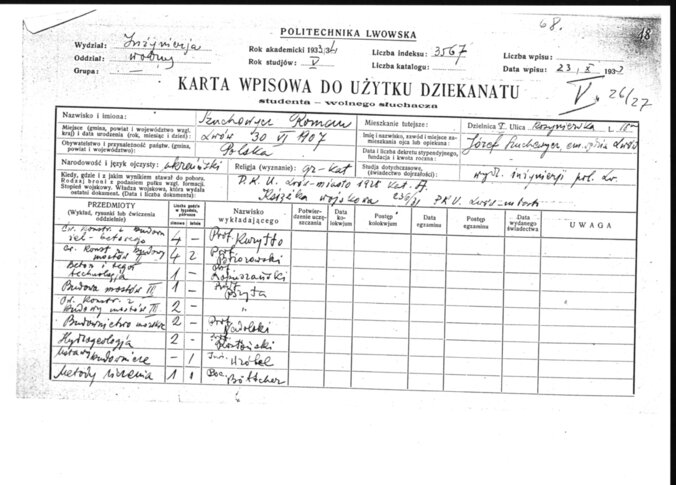 68.
18
POLITECHNIKA LWOWSKA
Wydział: Inżynierja
Rok akademicki 1933/34
Liczba indeksu: 3567
Liczba wpisu:
Oddział: wodny
Rok studjów: V
Liczba katalogu:
Data wpisu: 23 X 1933
Grupa:
V
26/27
KARTA WPISOWA DO UŻYTKU DZIEKANATU
studenta — wolnego słuchacza
Nazwisko i imiona: Szuchewicz Roman
Mieszkanie tutejsze:
Dzielnica Ulica
Miejsce (gmina, powiat i województwo wzgl. kraj) i data urodzenia (rok, miesiąc i dzień): Lwów 30 VI 1907
Imię i nazwisko, zawód i miejsce zamieszkania ojca lub opiekuna: Józef
Obywatelstwo i przynależność państw. (gmina, powiat i województwo): Polska
Data i liczba dekretu stypendyjnego, fundacja i kwota roczna:
Narodowość i język ojczysty: ukraiński
Religja (wyznanie): gr-kat
Studja dotychczasowe, (świadectwo dojrzałości): wydz. inżynierji pol. Lw.
Kiedy, gdzie i z jakim wynikiem stawał do poboru. Rodzaj broni z podaniem pułku wzgl. formacji. Stopień wojskowy. Władza wojskowa, która wydała ostatni dokument. (Data i liczba dokumentu).
P.K.U. Lwów-miasto 1928 Kat. A.
Książka wojskowa P.K.U. Lwów-miasto
PRZEDMIOTY (Wykład, rysunki lub ćwiczenia oddzielnie)
Liczba godz. w tygodniu, półrocze zimowe letnie
Nazwisko wykładającego
Potwierdzenie uczęszczania
Data kolokwjum
Postęp kolokwjum
Data egzaminu
Postęp egzaminu
Data wydanego świadectwa
UWAGA
Ćw. Konstr. z Budown. żel-betowego 4 — Prof. Kuryłło
Ćw. Konst. z Budowy mostów 4 2 Prof.
Beton i jego technologja 1 — Prof.
Budowa mostów III 1 —
Ćw. Konstr. z Budowy mostów III 2 — "
Budownictwo 2 — Prof.
Hydrogeologja 2 —
— 1 Inż. Wróbel
Metody liczenia 1 1 Doc. Böttcher